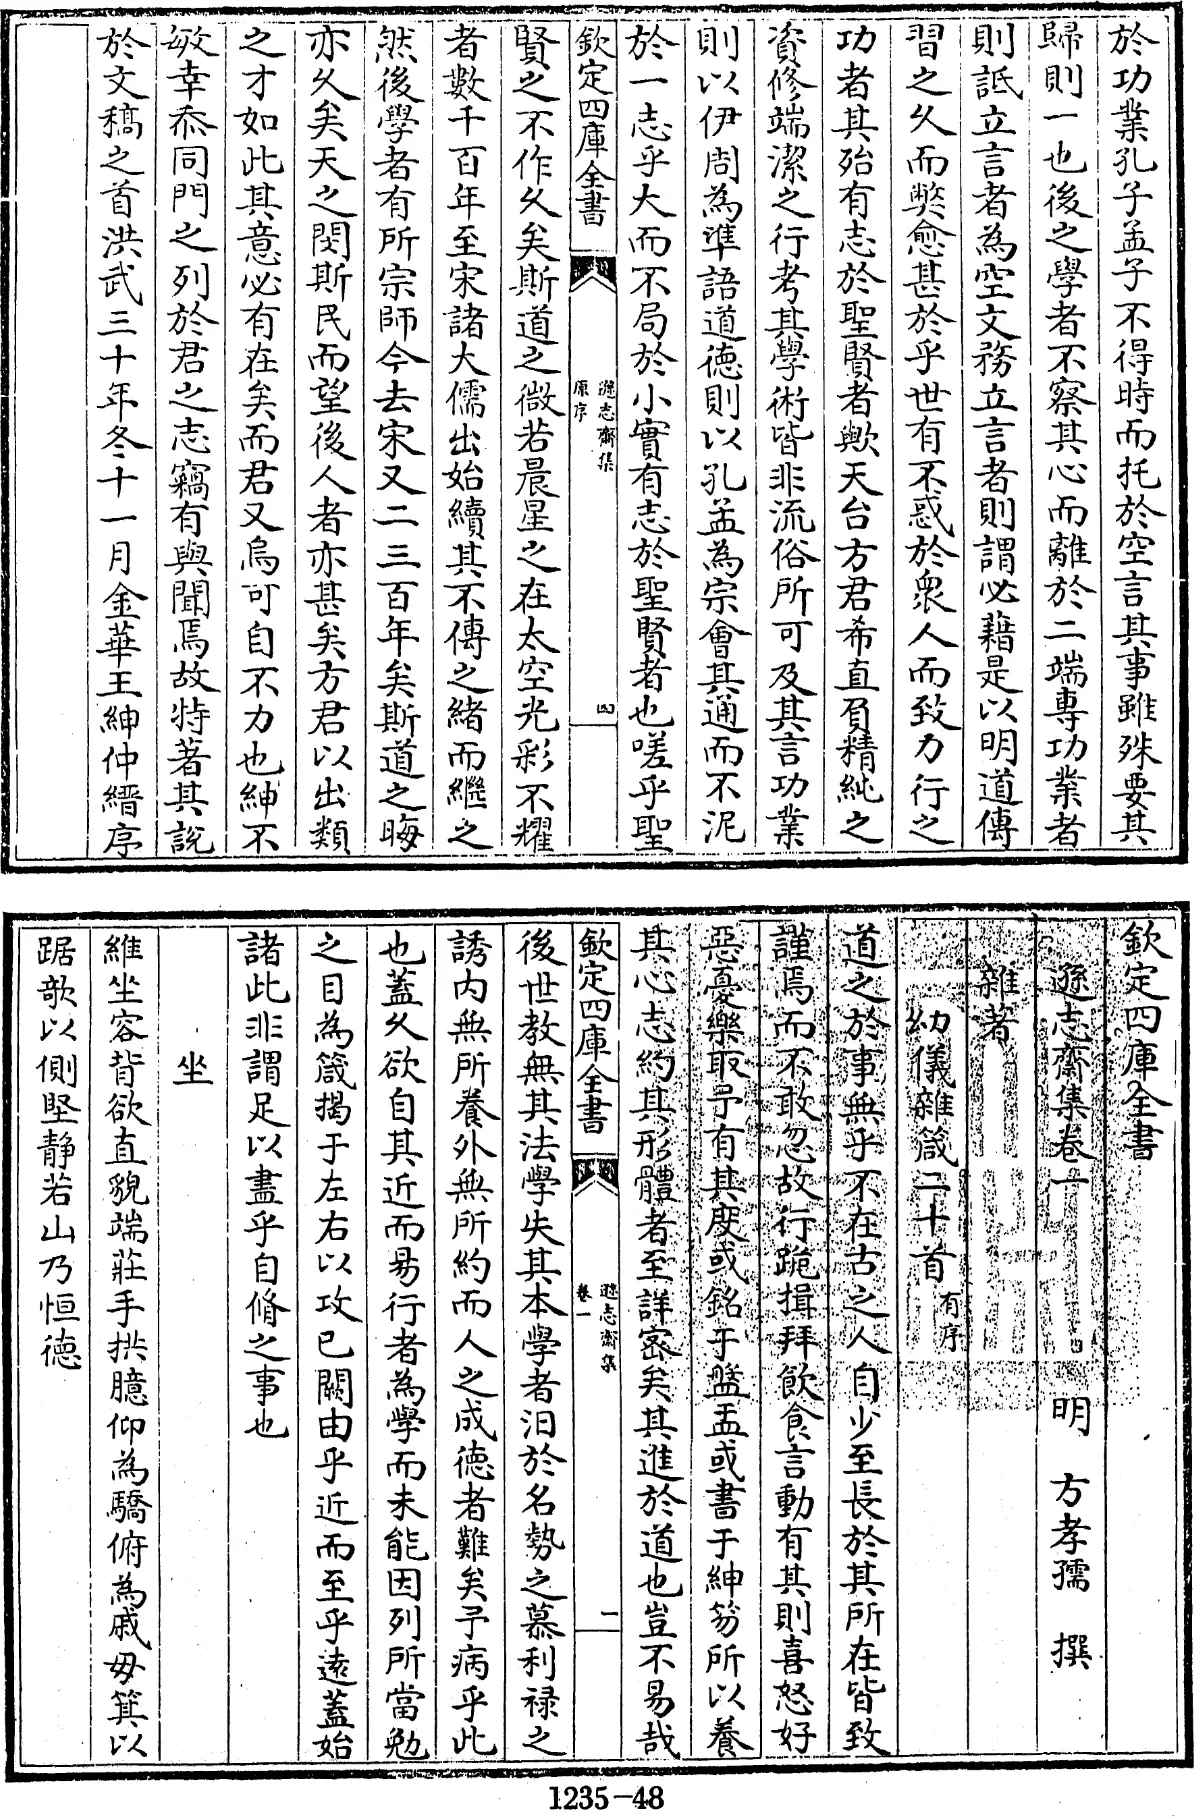 於功業孔子孟子不得時而托於空言其事雖殊要其
歸則一也後之學者不察其心而離於二端專功業者
則詆立言者為空文務立言者則謂必藉是以明道傳
習之久而弊愈甚於乎世有不惑於衆人而致力行之
功者其殆有志於聖賢者歟天台方君希直負精純之
資修端潔之行考其學術皆非流俗所可及其言功業
則以伊周為準語道德則以孔孟為宗會其通而不泥
於一志乎大而不局於小實有志於聖賢者也嗟乎聖
欽定四庫全書
遜志齋集
原序
四
賢之不作久矣斯道之微若晨星之在太空光彩不耀
者數千百年至宋諸大儒出始續其不傳之緒而繼之
然後學者有所宗師今去宋又二三百年矣斯道之晦
亦久矣天之閔斯民而望後人者亦甚矣方君以出類
之才如此其意必有在矣而君又烏可自不力也紳不
敏幸忝同門之列於君之志竊有與聞焉故特著其說
於文稿之首洪武三十年冬十一月金華王紳仲縉序
欽定四庫全書
遜志齋集卷一
明 方孝孺 撰
雜著
幼儀雜箴二十首有序
道之於事無乎不在古之人自少至長於其所在皆致
謹焉而不敢忽故行跪揖拜飲食言動有其則喜怒好
惡憂樂取予有其度或銘于盤盂或書于紳笏所以養
其心志約其形體者至詳密矣其進於道也豈不易哉
欽定四庫全書
遜志齋集
卷一
一
後世教無其法學失其本學者汨於名勢之慕利祿之
誘內無所養外無所約而人之成德者難矣予病乎此
也蓋久欲自其近而易行者為學而未能因列所當勉
之目為箴揭于左右以攻己闕由乎近而至乎遠蓋始
諸此非謂足以盡乎自脩之事也
坐
維坐容背欲直貌端莊手拱臆仰為驕俯為戚毋箕以
踞欹以側堅靜若山乃恒德
1235-48